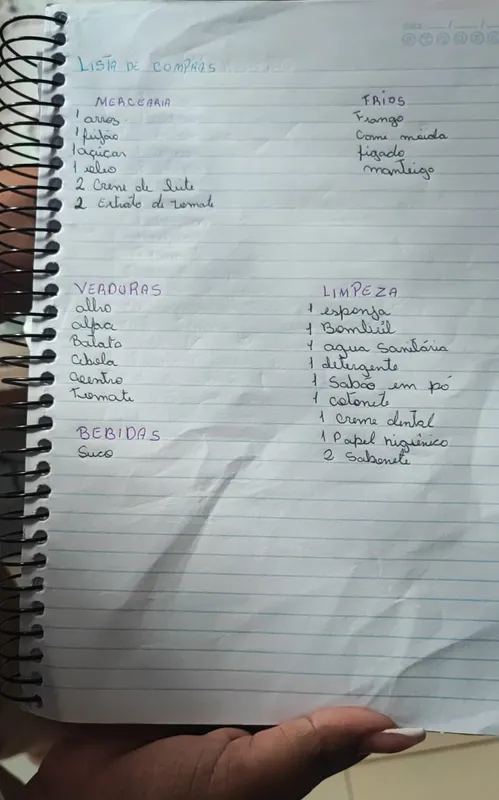 LISTA DE COMPRAS
MERCEARIA
1 arros
1 feijão
1 açúcar
1 oleo
2 Creme de leite
2 Extrato de tomate
FRIOS
Frango
Carne moida
figado
manteiga
VERDURAS
alho
alface
Batata
Cebola
Coentro
Tomate
BEBIDAS
Suco
LIMPEZA
1 esponja
1 Bombril
1 agua Sanitária
1 detergente
1 Sabão em pó
1 cotonete
1 Creme dental
1 Papel higiênico
2 Sabonete